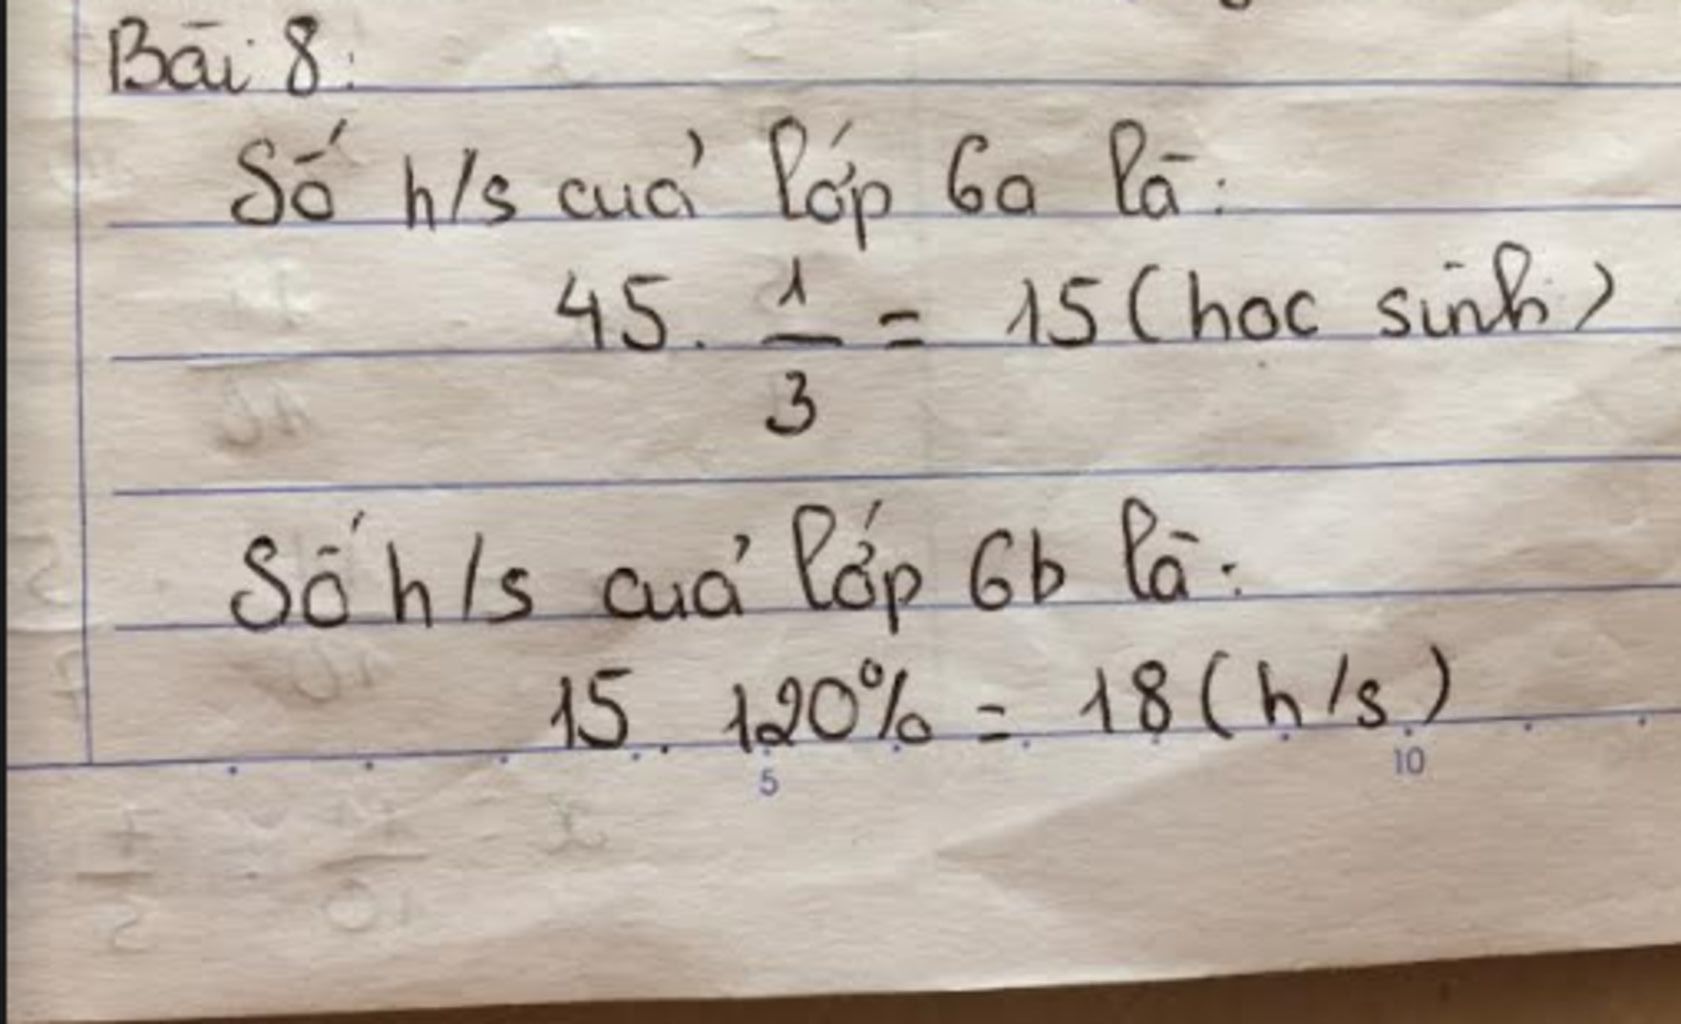 Bài 8:
Số h/s của lớp 6a là:
45 . 1/3 = 15 (học sinh)
Số h/s của lớp 6b là:
15 . 120% = 18 (h/s)
5 10